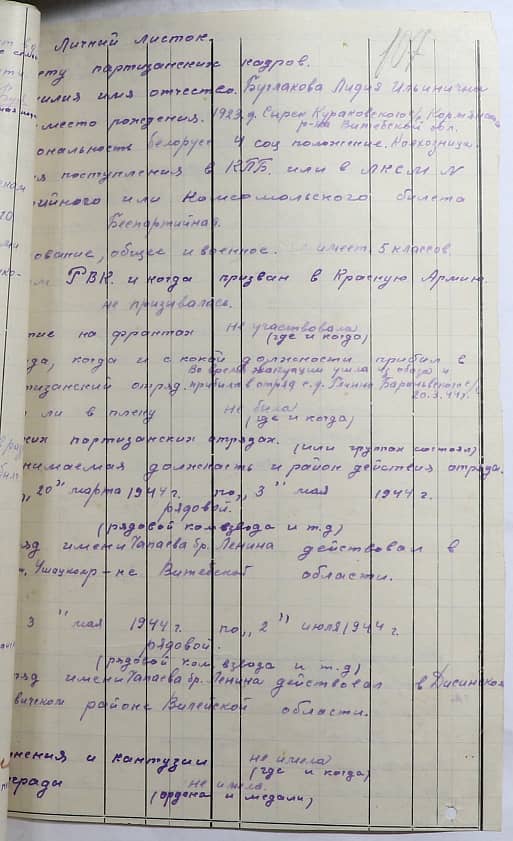 107
Личный листок
ету партизанских кадров.
милия имя отчество. Буглакова Лидия Ильинична
место рождения. 1923 д.
р-на Витебской обл.
ональность белорус 4 соц положение. Колхозница.
я поступления в КПБ. или в ЛКСМ. N
ийного или Комсомольского билета
Беспартийная.
ование, общее и военное. имеет 5 классов.
м РВК. и когда призван в Красную Армию.
не призывалась.
тие на франтах не участвовала
(где и когда)
да, когда и с какой должности прибил в
Во время эвакуации ушла из обоза и
тизанский отряд. прибила в отряд с.д.
20.3.44г.
ли в плену не била
(где и когда)
ких партизанских отрядах. (или группах состоял)
нимаемая должность и район действия отряда.
„20" марта 1944 г. по „ 3 " мая 1944 г.
рядовой.
(рядовой ком. взвода и т.д)
яд имени Чапаева бр. Ленина действовал в
Ушоцком р-не Витебской области.
3 " мая 1944 г. по „ 2 " июля 1944 г.
рядовой.
(рядовой ком. взвода и т.д)
яд имени Чапаева бр. Ленина действовал в Дисинском
вическом районе Вилейской области.
нения и кантузии не имела
(где и когда)
грады не имела.
(ордена и медали)